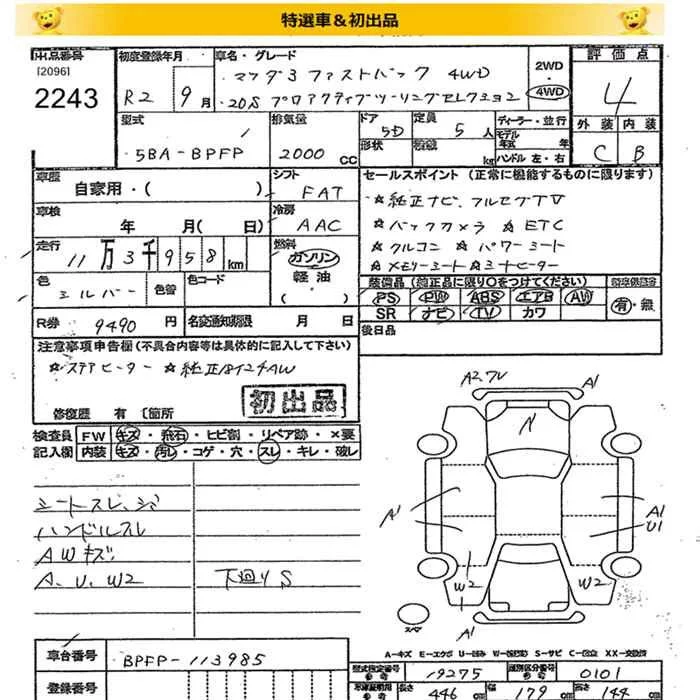 特選車&初出品
出品番号 初度登録年月 車名・グレード 2WD・4WD 評価点
[2096]
2243
R2 9月
マツダ3 ファストバック 4WD
20S プロアクティブツーリングセレクション
4
型式 排気量 ドア 定員 ディーラー・並行 外装 内装
5BA-BPFP 2000 CC 5D 5人 モデル年式 年
形状 積載 kg ハンドル 左・右 C B
車歴 シフト セールスポイント(正常に機能するものに限ります)
自家用・( ) FAT
☆純正ナビ、フルセグTV
車検 冷房
年 月( 日) AAC
☆バックカメラ ☆ETC
走行 燃料
11万3千958km ガソリン
☆クルコン ☆パワーシート
軽油
☆メモリーシート☆シートヒーター
色 色替 色コード ・( )
シルバー
装備品(純正品に限り○をつけてください)
PS PW ABS エアB AW 有・無
SR ナビ TV カワ
R券 9490円 名変通知期限 月 日 後日品
注意事項申告欄(不具合内容等は具体的に記入して下さい)
☆ステアヒーター ☆純正18インチAW
初出品
修復歴 有〔箇所
検査員記入欄 FW キズ・飛石・ヒビ割・リペア跡・×要
内装 キズ・汚れ・コゲ・穴・スレ・キレ・破レ
シートスレ、シワ
ハンドルスレ
AWキズ
A、U、W2 下廻りS
A2 フレ A1
A'
A' A1
U1
W2 W2
スペア A1
A-キズ E-エクボ U-凹み W-(板金波) S-サビ C-腐食 XX-交換済
車台番号 BPFP-113985 型式指定番号 参考 19275 類別区分番号 参考 0101
登録番号 車庫証明用 参考 長さ 446 cm 幅 179 cm 高さ 144